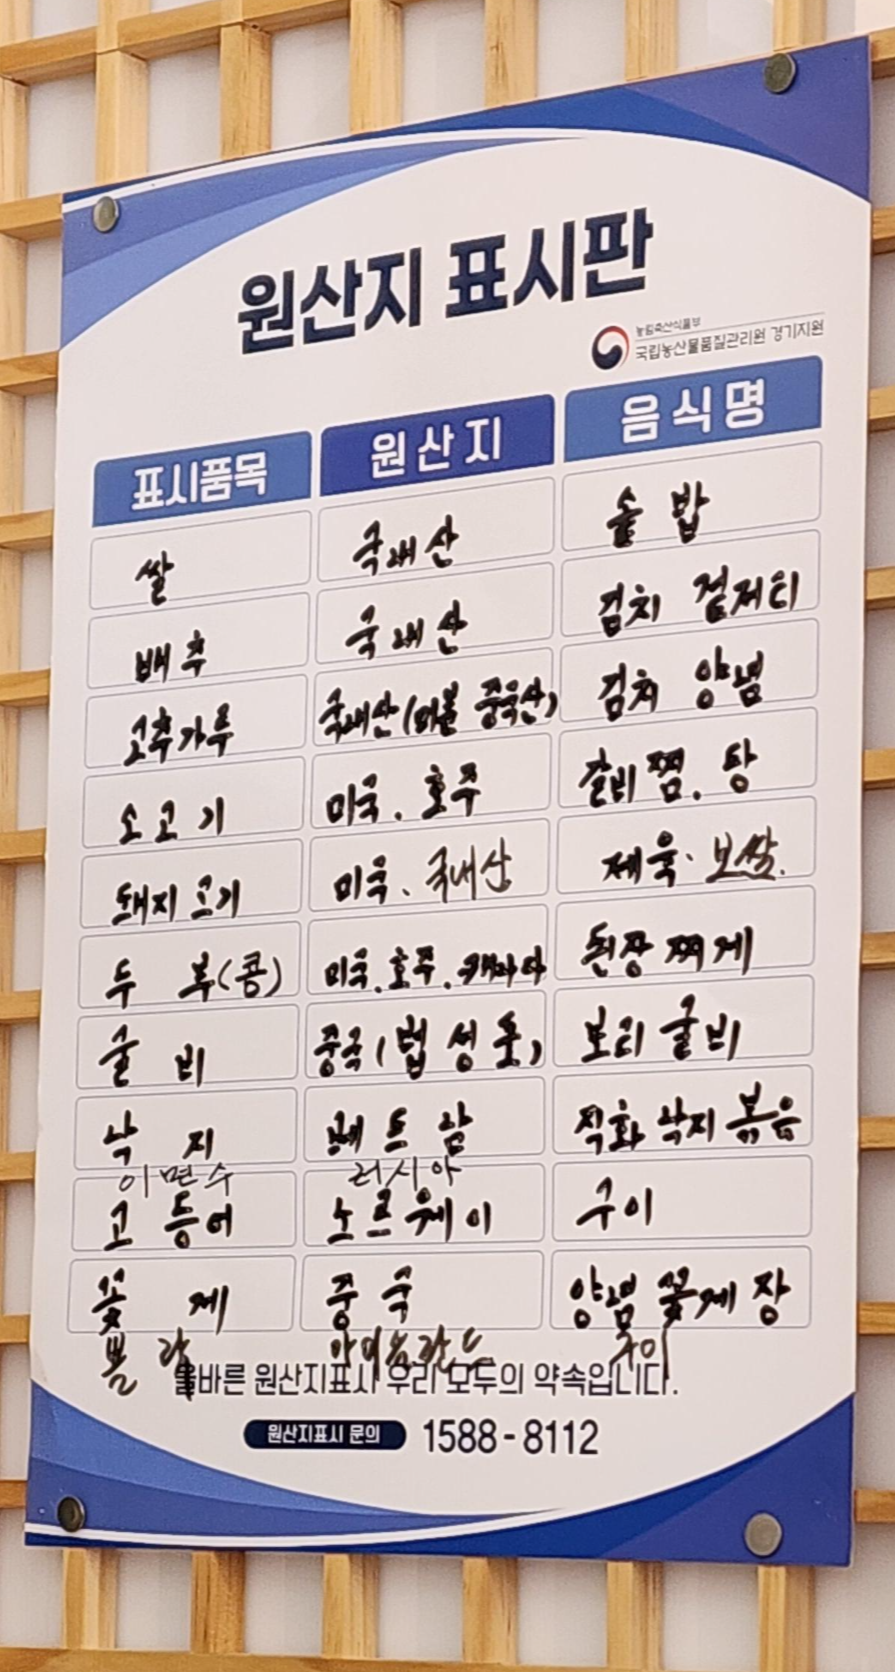 원산지 표시판
농림축산식품부
국립농산물품질관리원 경기지원
표시품목 원산지 음식명
쌀 국내산 솥밥
배추 국내산 김치 겉저리
고추가루 국내산(때론 중국산) 김치 양념
소고기 미국. 호주 갈비찜. 탕
돼지고기 미국. 국내산 제육. 보쌈.
두부(콩) 미국. 호주. 캐나다 된장찌게
굴비 중국(법성포) 보리굴비
낙지 베트남 직화낙지볶음
이면수 러시아
고등어 노르웨이 구이
꽃게 중국 양념꽃게장
뽈락 구이
올바른 원산지표시 우리 모두의 약속입니다.
원산지표시 문의 1588-8112